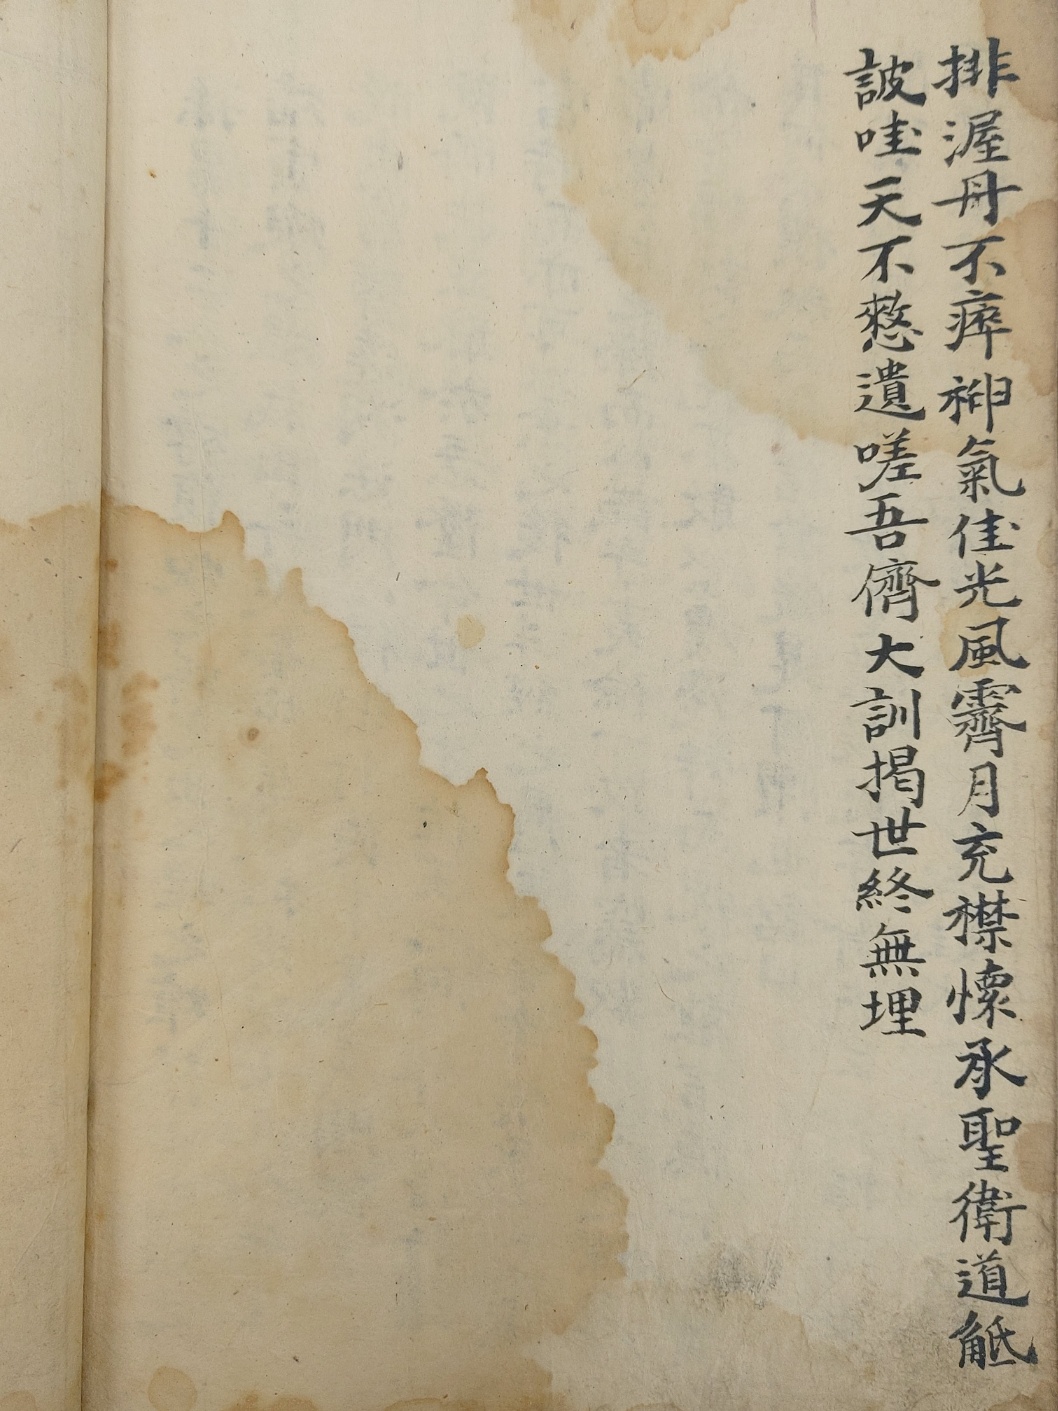 排渥丹不瘁神氣佳光風霽月充襟懷承聖衛道觝
詖哇天不憗遺嗟吾儕大訓揭世終無埋